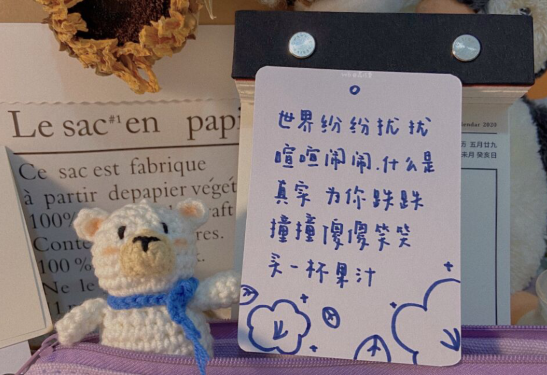 Le sac#1 en pap
Ce sac est fabrique
à partir de papier végét
100%
aft
Conte
res.
100 %
Ne le
endar 2020
五月廿九
癸亥日
世界纷纷扰扰
喧喧闹闹.什么是
真实 为你跌跌
撞撞傻傻笑笑
买一杯果汁